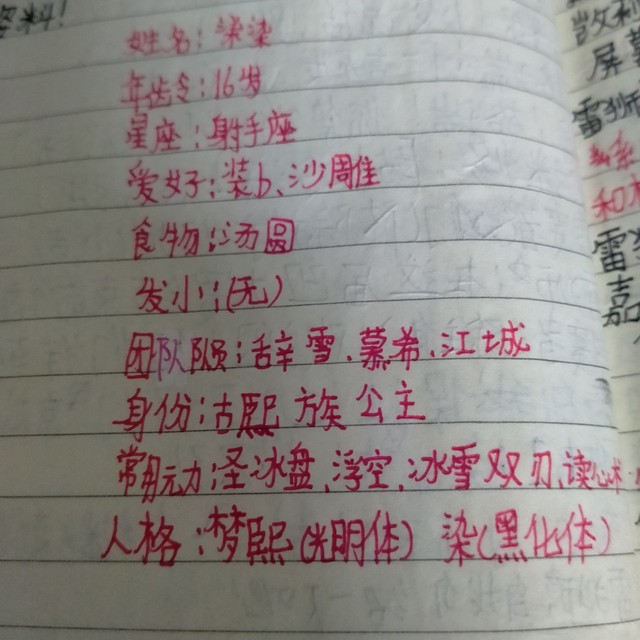 资料!
姓名:染染
年龄:16岁
星座:射手座
爱好:装b、沙雕
食物:汤圆
发小:(无)
团队颐:辞雪、慕希、江城
身份:古熙族公主
常用元力:圣冰盘、浮空、冰雪双刃、读心术、
人格:梦熙(光明体) 染(黑化体)
敌
屏
雷狮
和
雷
嘉